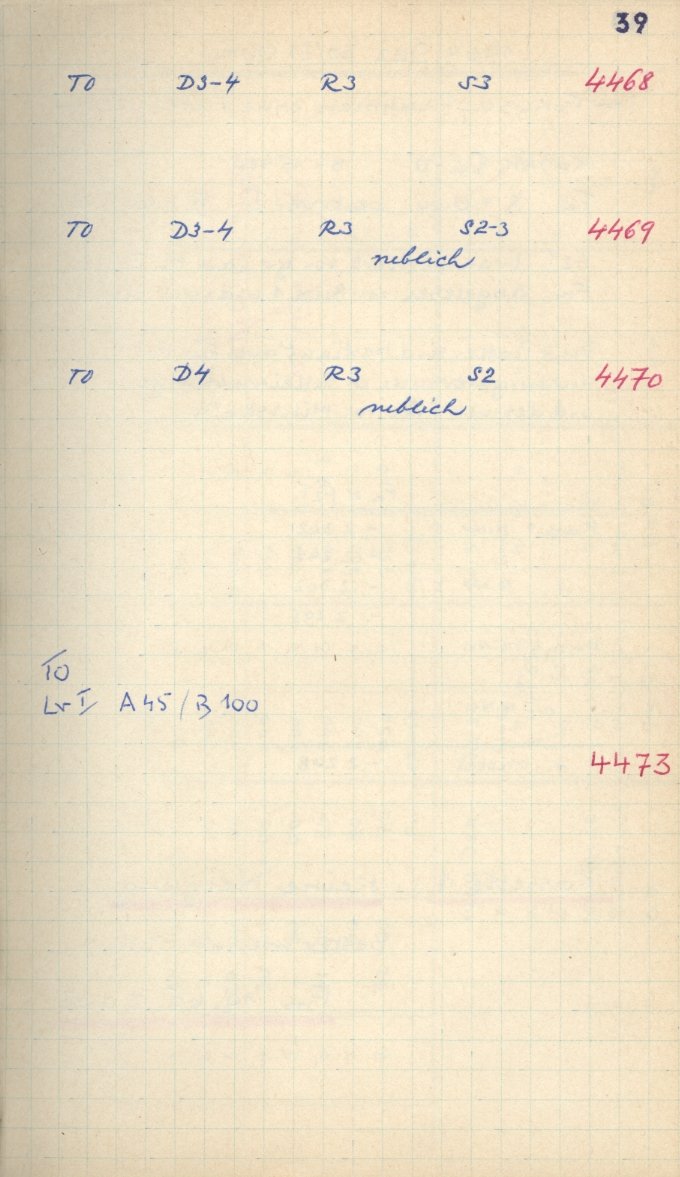 39
TO D3-4 R3 S3 4468
TO D3-4 R3 S2-3 4469
neblich
TO D4 R3 S2 4470
neblich
TO
Lv I A 45 / B 100
4473